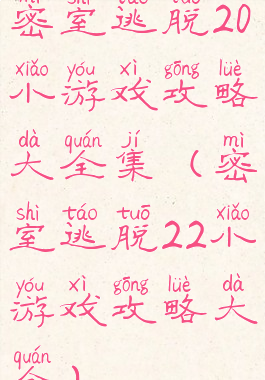 mì shì táo tuō
密室逃脱20
xiǎo yóu xì gōng lüè
小游戏攻略
dà quán jí mì
大全集(密
shì táo tuō xiǎo
室逃脱22小
yóu xì gōng lüè dà
游戏攻略大
quán
全)